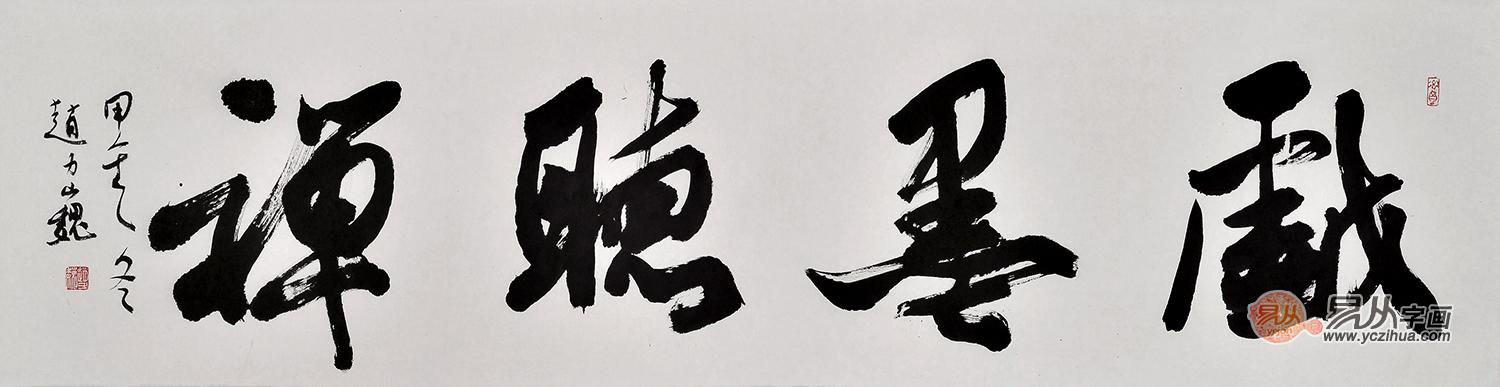 戲墨聽禪
冬
趙力巍
易从
易从字画
www.yczihua.com